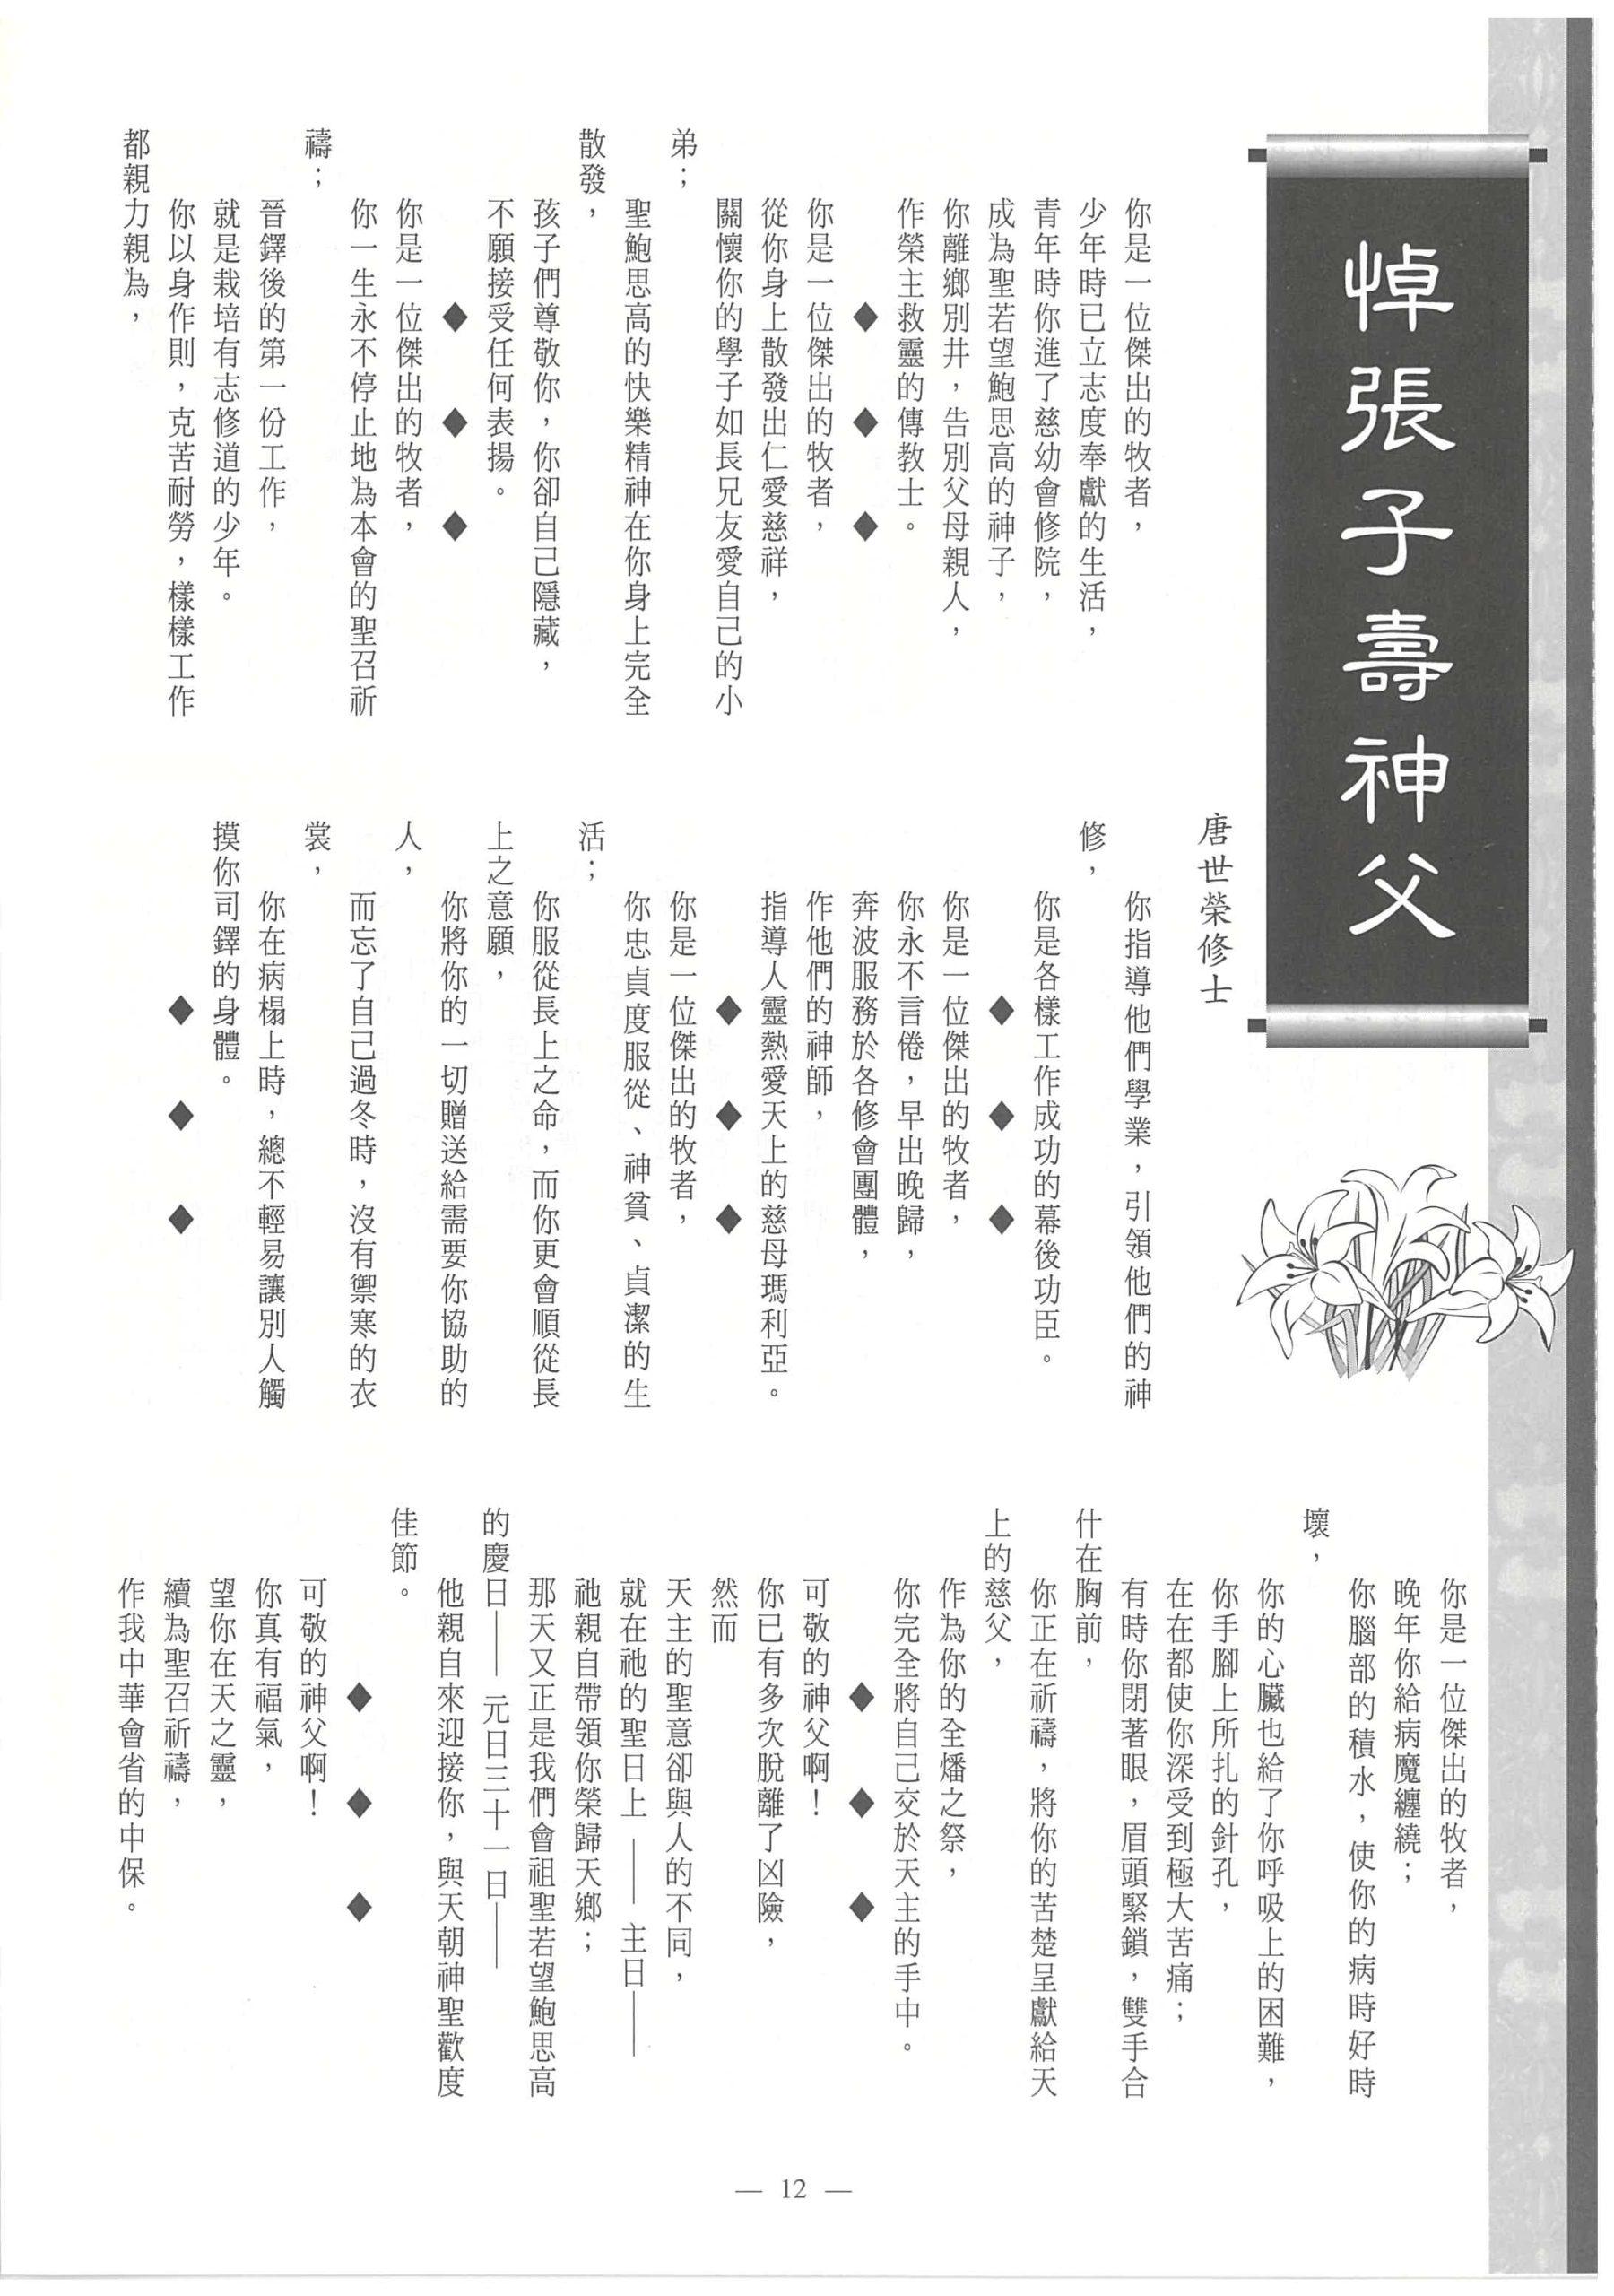 悼張子壽神父
唐世榮修士
你是一位傑出的牧者，
少年時已立志度奉獻的生活，
青年時你進了慈幼會修院，
成為聖若望鮑思高的神子，
你離鄉別井，告別父母親人，
作榮主救靈的傳教士。
◆ ◆ ◆
你是一位傑出的牧者，
從你身上散發出仁愛慈祥，
關懷你的學子如長兄友愛自己的小
弟；
聖鮑思高的快樂精神在你身上完全
散發，
孩子們尊敬你，你卻自己隱藏，
不願接受任何表揚。
◆ ◆ ◆
你是一位傑出的牧者，
你一生永不停止地為本會的聖召祈
禱；
晉鐸後的第一份工作，
就是栽培有志修道的少年。
你以身作則，克苦耐勞，樣樣工作
都親力親為，
你指導他們學業，引領他們的神
修，
你是各樣工作成功的幕後功臣。
◆ ◆ ◆
你是一位傑出的牧者，
你永不言倦，早出晚歸，
奔波服務於各修會團體，
作他們的神師，
指導人靈熱愛天上的慈母瑪利亞。
◆ ◆ ◆
你是一位傑出的牧者，
你忠貞度服從、神貧、貞潔的生
活；
你服從長上之命，而你更會順從長
上之意願，
你將你的一切贈送給需要你協助的
人，
而忘了自己過冬時，沒有禦寒的衣
裳，
你在病榻上時，總不輕易讓別人觸
摸你司鐸的身體。
◆ ◆ ◆
你是一位傑出的牧者，
晚年你給病魔纏繞；
你腦部的積水，使你的病時好時
壞，
你的心臟也給了你呼吸上的困難，
你手腳上所扎的針孔，
在在都使你深受到極大苦痛；
有時你閉著眼，眉頭緊鎖，雙手合
什在胸前，
你正在祈禱，將你的苦楚呈獻給天
上的慈父，
作為你的全燔之祭，
你完全將自己交於天主的手中。
◆ ◆ ◆
可敬的神父啊！
你已有多次脫離了凶險，
然而
天主的聖意卻與人的不同，
就在祂的聖日上 —— 主日——
祂親自帶領你榮歸天鄉；
那天又正是我們會祖聖若望鮑思高
的慶日—— 元日三十一日——
他親自來迎接你，與天朝神聖歡度
佳節。
◆ ◆ ◆
可敬的神父啊！
你真有福氣，
望你在天之靈，
續為聖召祈禱，
作我中華會省的中保。
— 12 —